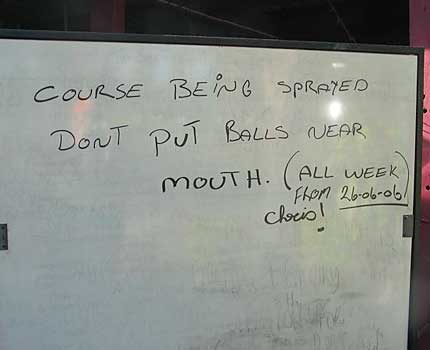 COURSE BEING SPRAYED
DONT PUT BALLS NEAR
MOUTH. (ALL WEEK
FROM 26-06-06)
Chris!